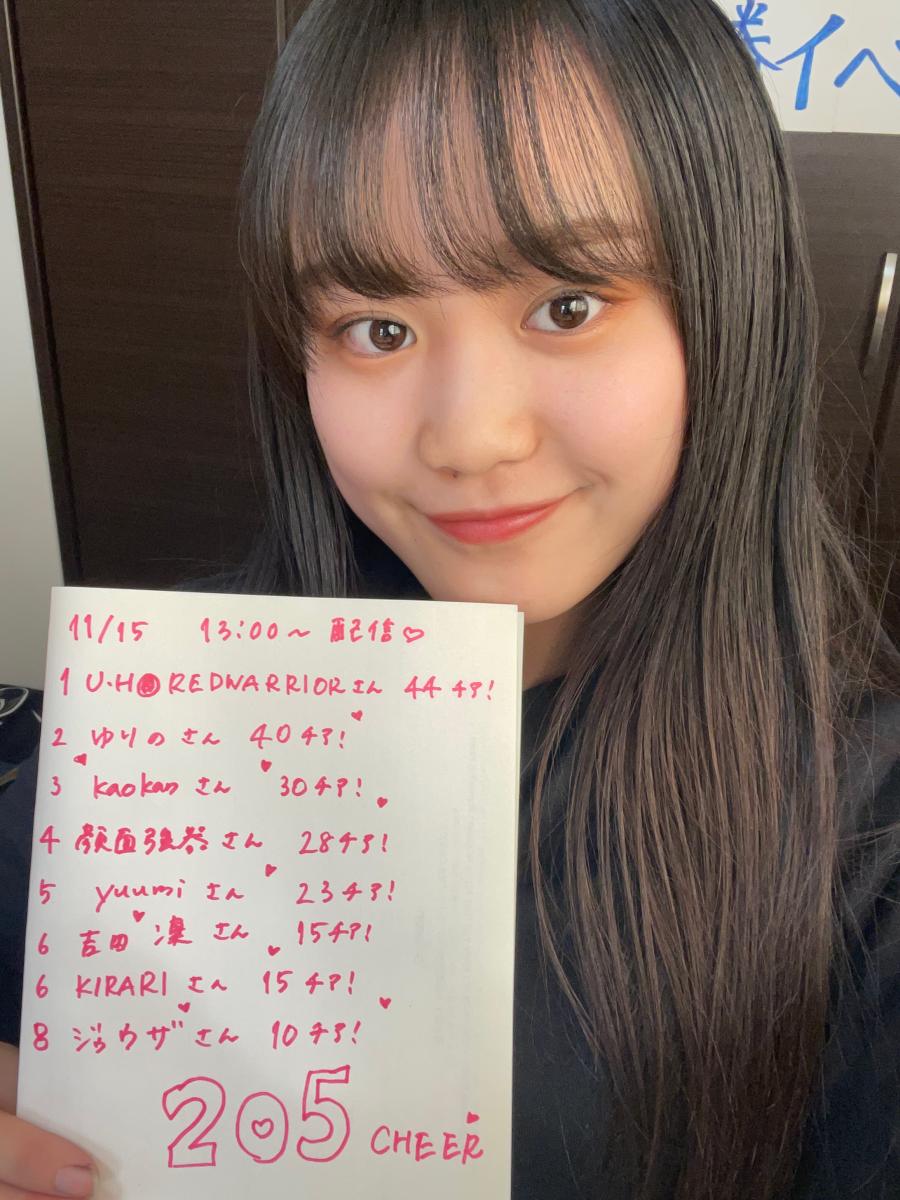 イベ
11/15 13:00～ 配信♡
1 U・H REDWARRIORさん 44チア！
2 ゆりのさん 40チア！
3 kaokanさん 30チア！
4 顔面強打さん 28チア！
5 yuumiさん 23チア！
6 吉田 凜さん 15チア！
6 KIRARIさん 15チア！
8 ジョウザさん 10チア！
205 CHEER